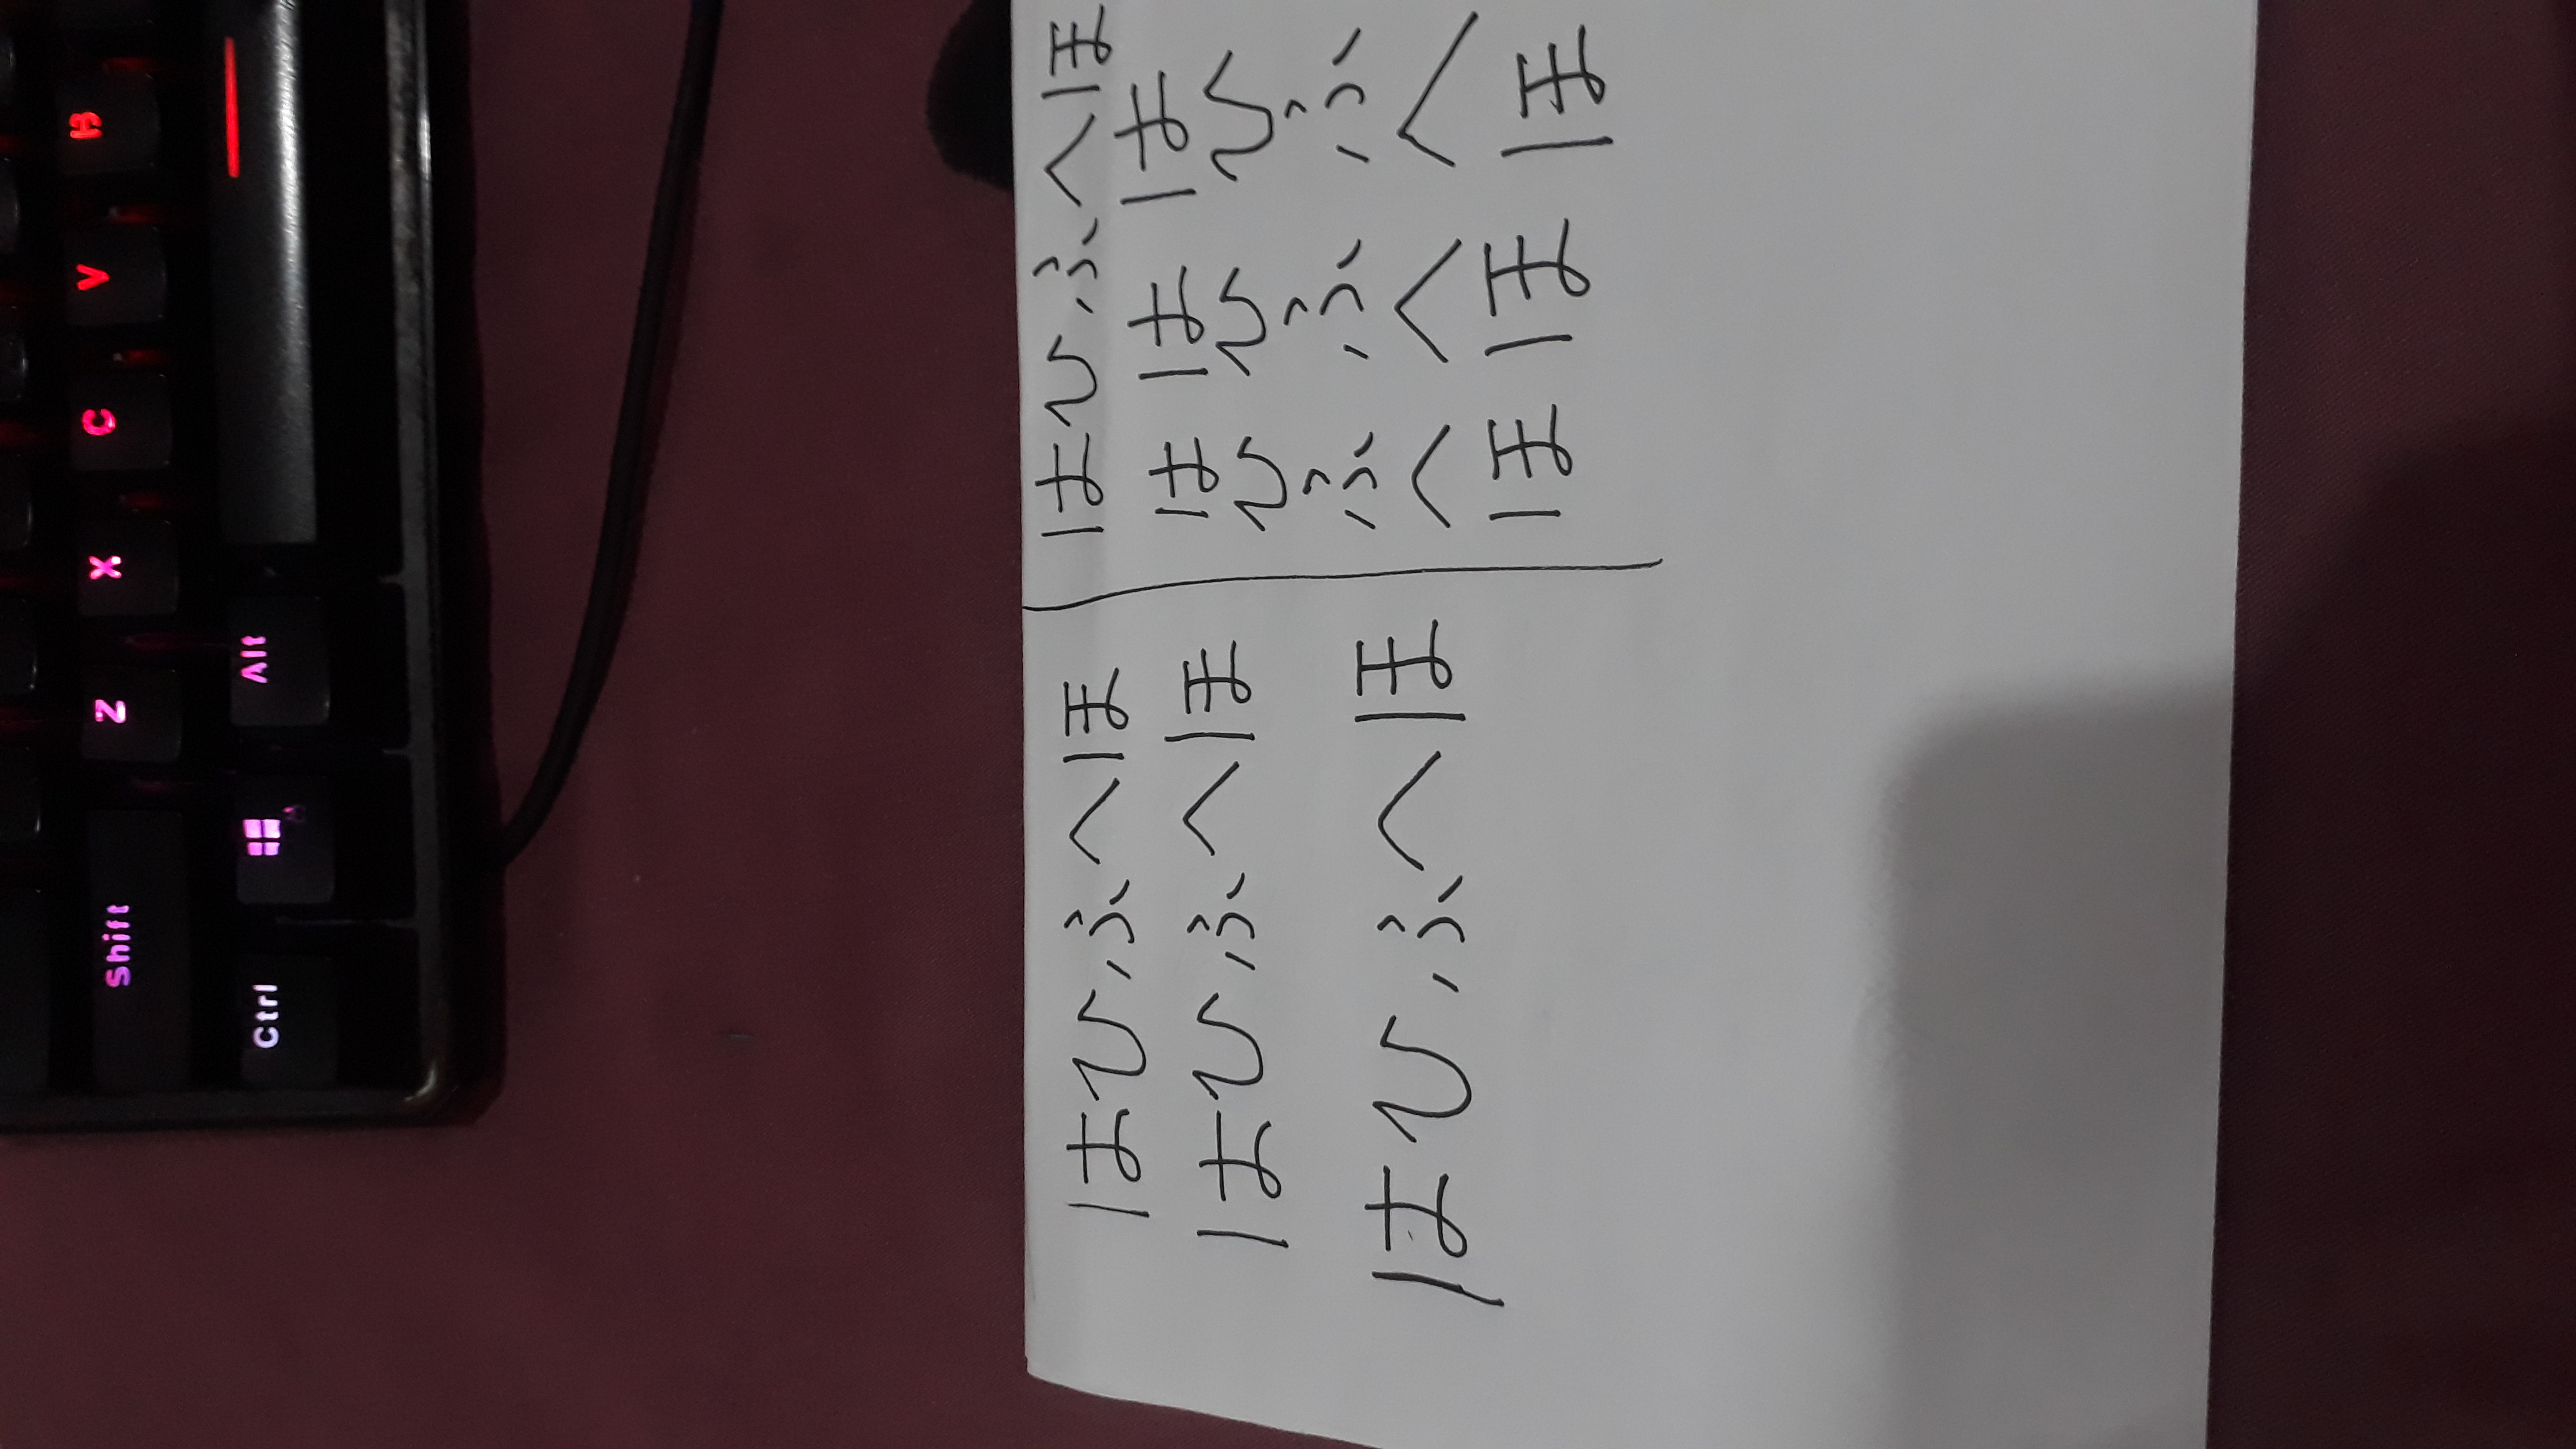 Shift Z X C V B
Ctrl Alt
はひふへほ
はひふへほ
はひふへほ
はひふへほ
は は は
ひ ひ ひ
ふ ふ ふ
へ へ へ
ほ ほ ほ